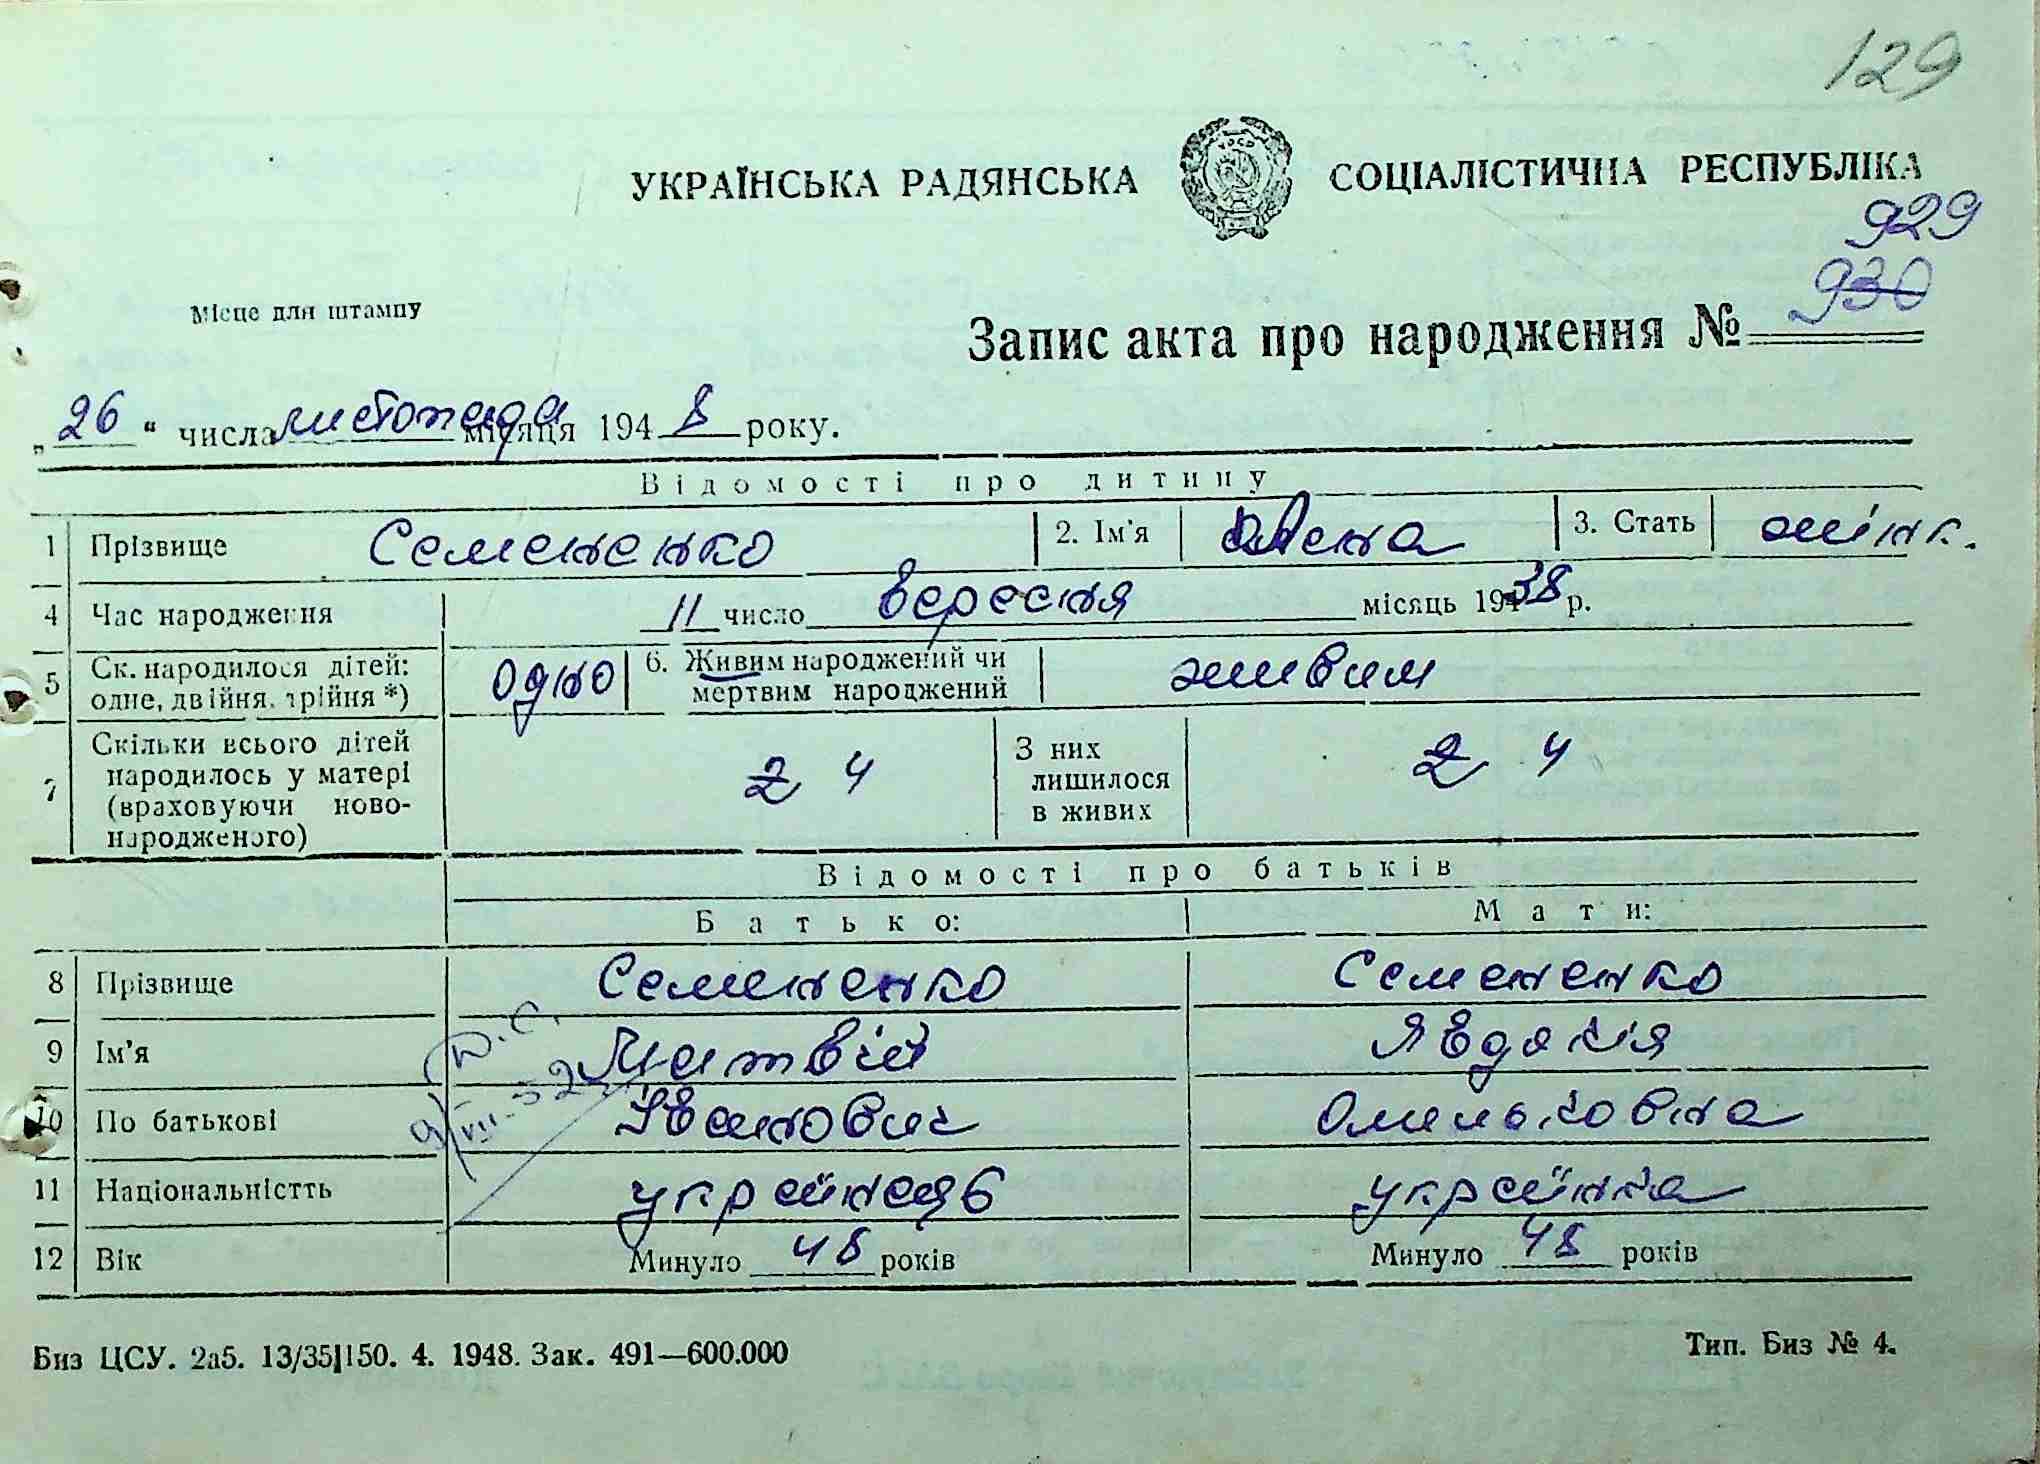 129
УКРАЇНСЬКА РАДЯНСЬКА СОЦІАЛІСТИЧНА РЕСПУБЛІКА
929
Місце для штампу
Запис акта про народження № 930
„26“ числа листопада місяця 1948 року.
Відомості про дитину
1 Прізвище Семененко 2. Ім'я 3. Стать жінк.
4 Час народження 11 число вересня місяць 1938 р.
5 Ск. народилося дітей: одне, двійня, трійня *) одно 6. Живим народжений чи мертвим народжений живим
7 Скільки всього дітей народилось у матері (враховуючи новонародженого) 2 4 З них лишилося в живих 2 4
Відомості про батьків
Батько: Мати:
8 Прізвище Семененко Семененко
9 Ім'я Матвій Явдокія
10 По батькові Іванович Омельковна
11 Національністть українець українка
12 Вік Минуло 48 років Минуло 48 років
Биз ЦСУ. 2а5. 13/35|150. 4. 1948. Зак. 491—600.000 Тип. Биз № 4.